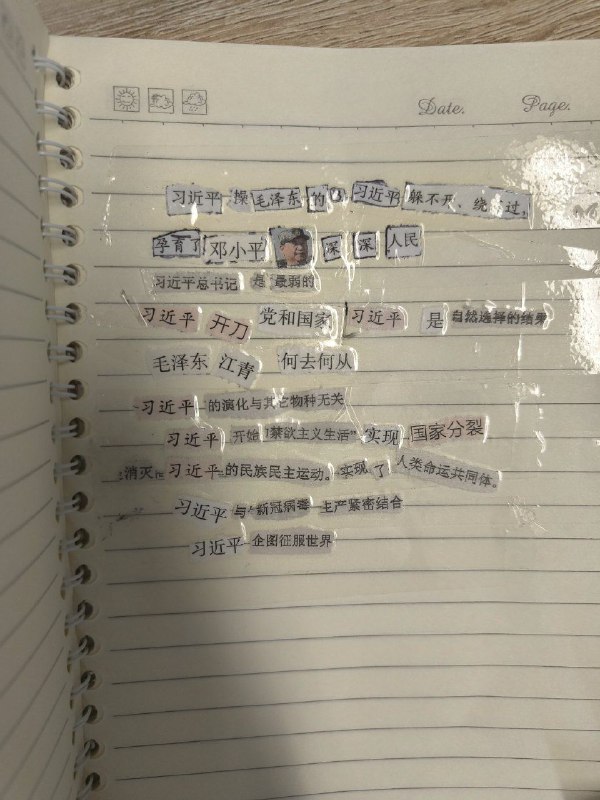 Date. Page.
习近平 操 毛泽东 的 习近平 躲不开、绕 过,
孕育了 邓小平 深 深 人民
习近平总书记 是 最弱的
习近平 开刀 党和国家 习近平 是 自然选择的结果
毛泽东 江青 何去何从
习近平 的演化与其它物种无关
习近平 开始"禁欲主义生活" 实现 国家分裂
消灭 习近平 的民族民主运动。实现 了 人类命运共同体。
习近平 与 新冠病毒 紧密结合
习近平 企图征服世界